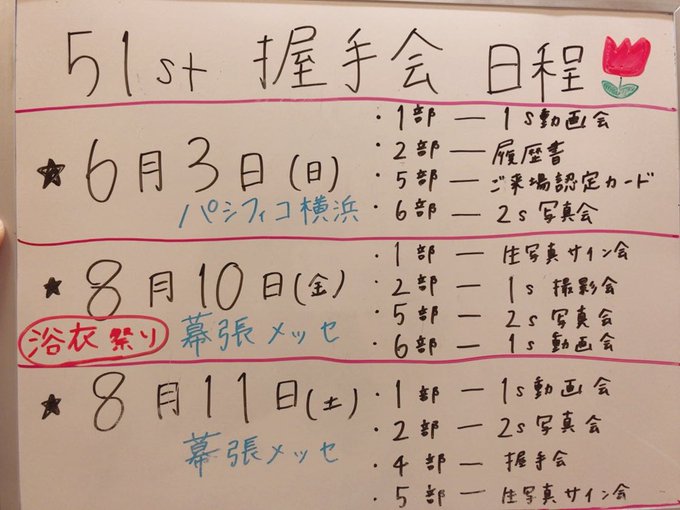 51st 握手会 日程
★6月3日(日)
パシフィコ横浜
・1部 ー 1s動画会
・2部 ー 履歴書
・5部 ー ご来場認定カード
・6部 ー 2s写真会
★8月10日(金)
浴衣祭り 幕張メッセ
・1部 ー 生写真サイン会
・2部 ー 1s撮影会
・5部 ー 2s写真会
・6部 ー 1s動画会
★8月11日(土)
幕張メッセ
・1部 ー 1s動画会
・2部 ー 2s写真会
・4部 ー 握手会
・5部 ー 生写真サイン会